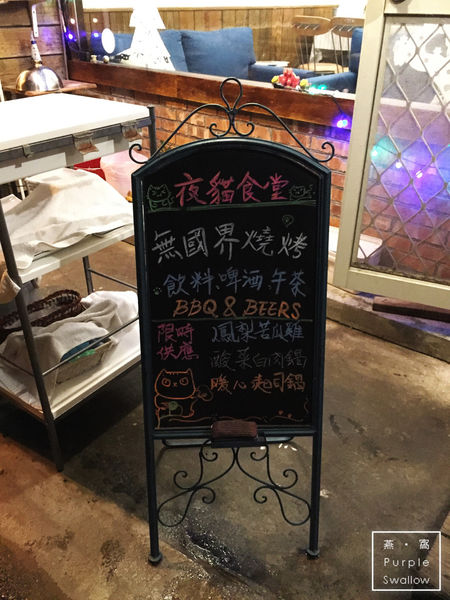 夜貓食堂
無國界燒烤
飲料、啤酒、午茶
BBQ & BEERS
限時供應
鳳梨苦瓜雞
酸菜白肉鍋
暖心起司鍋
燕・窩
Purple
Swallow